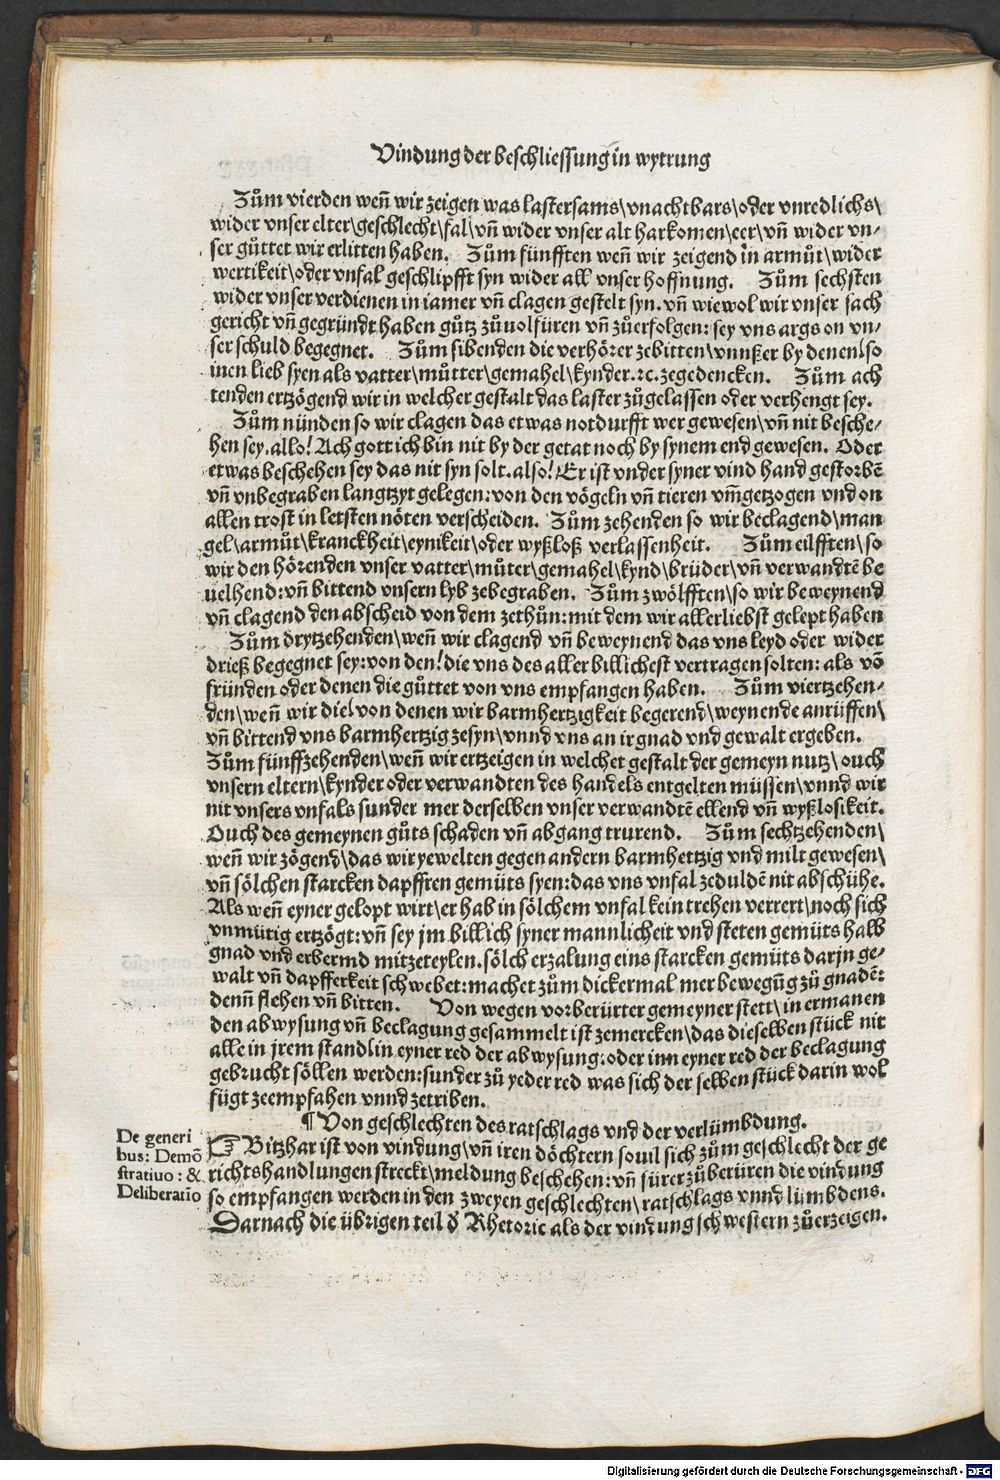 Vindung der beschliessung in wytrung
Zům vierden weñ wir zeigen was lastersams\vnachtbars\oder vnredlichs\
wider vnser elter\geschlecht\fal\vñ wider vnser alt harkomen\eer\vñ wider vn-
ser gůttet wir erlitten haben. Zům fünfften weñ wir zeigend in armůt\wider
wertikeit\oder vnfal geschlipfft syn wider all vnser hoffnung. Zům sechsten
wider vnser verdienen in iamer vñ clagen gestelt syn. vñ wiewol wir vnser sach
gericht vñ gegründt haben gůtz zůuolfüren vñ zůerfolgen: sey vns args on vn-
ser schuld begegnet. Zům sibenden die verhörer zebitten\vnnßer by denen/so
inen lieb syen als vatter\můtter\gemahel\kynder.ꝛc.zegedencken. Zům ach
tenden ertzögend wir in welcher gestalt das laster zůgelassen oder verhengt sey.
Zům nünden so wir clagen das etwas notdurfft wer gewesen\vñ nit besche-
hen sey.allo! Ach gott ich bin nit by der getat noch by synem end gewesen. Oder
etwas beschehen sey das nit syn solt.also! Er ist vnder syner vind hand gestorbē
vñ vnbegraben langtzyt gelegen: von den vögeln vñ tieren vm̄getzogen vnd on
allen trost in letsten nöten verscheiden. Zům zehenden so wir beclagend\man
gel\armůt\kranckheit\eynikeit\oder wyßloß verlassenheit. Zům eilfften\so
wir den hörenden vnser vatter\můter\gemahel\kynd\brüder\vñ verwandtē be
uelhend:vñ bittend vnsern lyb zebegraben. Zům zwölfften\so wir beweynend
vñ clagend den abscheid von dem zethůn: mit dem wir allerliebst gelept haben
Zům drytzehenden\weñ wir clagend vñ beweynend das vns leyd oder wider
drieß begegnet sey:von den!die vns des aller billichest vertragen solten: als vō
fründen oder denen die gůttet von vns empfangen haben. Zům viertzehen-
den\weñ wir die/von denen wir barmhertzigkeit begerend\weynende anrüffen\
vñ bittend vns barmhertzig zesyn\vnnd vns an ir gnad vnd gewalt ergeben.
Zům fünffzehenden\weñ wir ertzeigen in welchet gestalt der gemeyn nutz\ouch
vnsern eltern\kynder oder verwandten des handels entgelten müssen\vnnd wir
nit vnsers vnfals sunder mer derselben vnser verwandtē ellend vñ wyßlosikeit.
Ouch des gemeynen gůts schaden vñ abgang trurend. Zům sechtzehenden\
weñ wir zögend\das wir yewelten gegen andern barmhertzig vnd milt gewesen\
vñ sölchen starcken dapffren gemüts syen:das vns vnfal zeduldē nit abschühe.
Als weñ eyner gelopt wirt\er hab in sölchem vnfal kein trehen verrert\noch sich
vnmütig ertzögt: vñ sey jm billich syner mannlicheit vnd steten gemüts halb
gnad vnd erbermd mitzeteylen.sölch erzalung eins starcken gemüts darjn ge-
walt vñ dapfferkeit schwebet: machet zům dickermal mer bewegūg zů gnadē:
denn flehen vñ bitten. Von wegen vorberürter gemeyner stett\in ermanen
den abwysung vñ beclagung gesammelt ist zemercken\das dieselben stück nit
alle in jrem stand/in eyner red der abwysung: oder inn eyner red der beclagung
gebrucht söllen werden: sunder zů yeder red was sich der selben stück darin wol
fügt zeempfahen vnnd zetriben.
¶ Von geschlechten des ratschlags vnd der verlümbdung.
De generi
bus: Demō
stratiuo : &
Deliberatio
☞ Bitzhar ist von vindung\vñ iren döchtern souil sich zům geschlecht der ge
richtshandlungen streckt\meldung beschehen: vñ fürer zůberüren die vindung
so empfangen werden in den zweyen geschlechten\ratschlags vnnd lümbdens.
Darnach die übrigen teil d̕ Rhetoric als der vindung schwestern zůerzeigen.
Digitalisierung gefördert durch die Deutsche Forschungsgemeinschaft - DFG